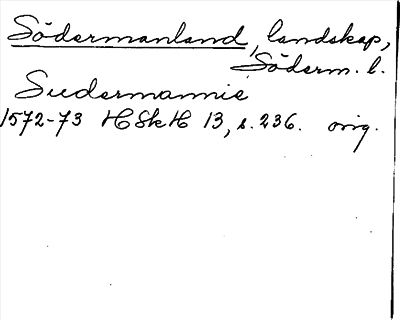 Södermanland, landskap,
Söderm. l.
Sudermannie
1572-73 HSkH 13, s. 236. orig.